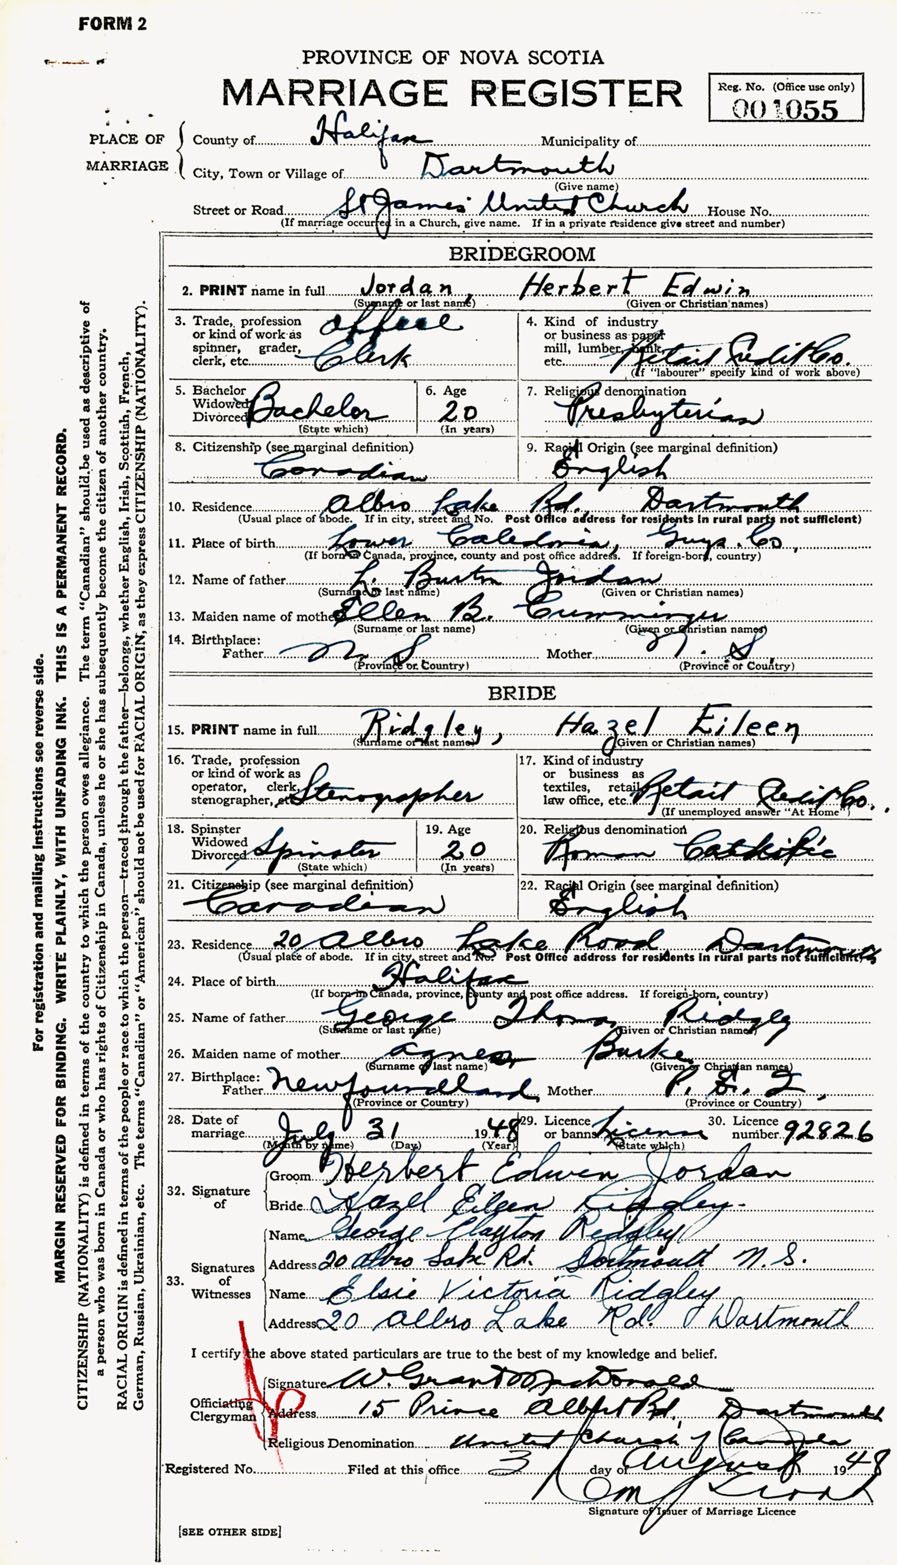 FORM 2
PROVINCE OF NOVA SCOTIA
MARRIAGE REGISTER
Reg. No. (Office use only)
001055
PLACE OF MARRIAGE
County of Halifax Municipality of
City, Town or Village of Dartmouth
(Give name)
Street or Road St James' United Church House No.
(If marriage occurred in a Church, give name. If in a private residence give street and number)
BRIDEGROOM
2. PRINT name in full Jordan, Herbert Edwin
(Surname or last name) (Given or Christian names)
3. Trade, profession or kind of work as spinner, grader, clerk, etc. Office Clerk
4. Kind of industry or business as paper mill, lumber, bank, etc. Retail Credit Co.
(If "labourer" specify kind of work above)
5. Bachelor Widowed Divorced Bachelor
(State which)
6. Age 20
(In years)
7. Religious denomination Presbyterian
8. Citizenship (see marginal definition) Canadian
9. Racial Origin (see marginal definition) English
10. Residence Albro Lake Rd., Dartmouth
(Usual place of abode. If in city, street and No. Post Office address for residents in rural parts not sufficient)
11. Place of birth Lower Caledonia, Guys. Co,
(If born in Canada, province, county and post office address. If foreign-born, country)
12. Name of father L. Burton Jordan
(Surname or last name) (Given or Christian names)
13. Maiden name of mother Ellen B. Cumminger
(Surname or last name) (Given or Christian names)
14. Birthplace: Father N. S. Mother N. S.
(Province or Country) (Province or Country)
BRIDE
15. PRINT name in full Ridgley, Hazel Eileen
(Surname or last name) (Given or Christian names)
16. Trade, profession or kind of work as operator, clerk, stenographer, etc. Stenographer
17. Kind of industry or business as textiles, retail, law office, etc. Retail Credit Co.
(If unemployed answer "At Home")
18. Spinster Widowed Divorced Spinster
(State which)
19. Age 20
(In years)
20. Religious denomination Roman Catholic
21. Citizenship (see marginal definition) Canadian
22. Racial Origin (see marginal definition) English
23. Residence 20 Albro Lake Road, Dartmouth
(Usual place of abode. If in city, street and No. Post Office address for residents in rural parts not sufficient)
24. Place of birth Halifax
(If born in Canada, province, county and post office address. If foreign-born, country)
25. Name of father George Thomas Ridgley
(Surname or last name) (Given or Christian names)
26. Maiden name of mother Agnes Burke
(Surname or last name) (Given or Christian names)
27. Birthplace: Father Newfoundland Mother P. E. I
(Province or Country) (Province or Country)
28. Date of marriage July 31 1948
(Month by name) (Day) (Year)
29. Licence or banns License
(State which)
30. Licence number 92826
32. Signature of
Groom Herbert Edwin Jordan
Bride Hazel Eileen Ridgley.
33. Signatures of Witnesses
Name George Clayton Ridgley
Address 20 Albro Lake Rd. Dartmouth N.S.
Name Elsie Victoria Ridgley
Address 20 Albro Lake Rd. Dartmouth
I certify the above stated particulars are true to the best of my knowledge and belief.
Officiating Clergyman
Signature W. Grant MacDonald
Address 15 Prince Albert Rd, Dartmouth
Religious Denomination United Church of Canada
Registered No. Filed at this office 3 day of August 1948
Signature of Issuer of Marriage Licence
[SEE OTHER SIDE]
For registration and mailing instructions see reverse side.
MARGIN RESERVED FOR BINDING. WRITE PLAINLY, WITH UNFADING INK. THIS IS A PERMANENT RECORD.
CITIZENSHIP (NATIONALITY) is defined in terms of the country to which the person owes allegiance. The term "Canadian" should be used as descriptive of
a person who was born in Canada or who has rights of Citizenship in Canada, unless he or she has subsequently become the citizen of another country.
RACIAL ORIGIN is defined in terms of the people or race to which the person—traced through the father—belongs, whether English, Irish, Scottish, French,
German, Russian, Ukrainian, etc. The terms "Canadian" or "American" should not be used for RACIAL ORIGIN, as they express CITIZENSHIP (NATIONALITY).